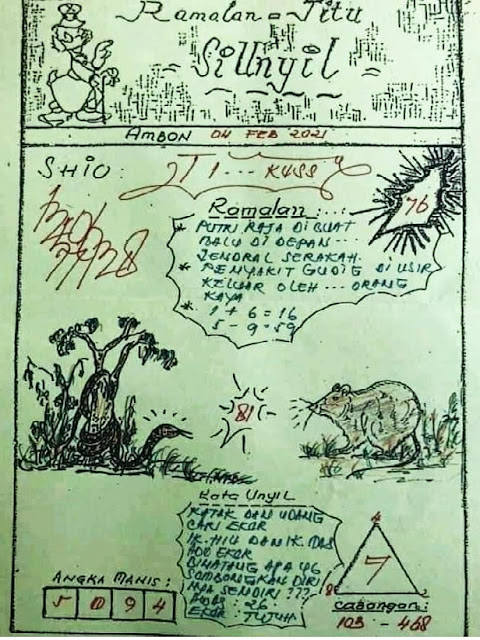 Ramalan = Jitu
Si Unyil
AMBON 04 FEB 2021
SHIO:
76
Ramalan ....:
* PUTRI RAJA DI BUAT
MALU DI DEPAN ...
JENDRAL SERAKAH.
* PENYAKIT GUDIG DI USIR
KELUAR OLEH ... ORANG
KAYA
* 1 + 6 = 16
5 - 9 = 59
81
Kata Unyil
KATAK DAN UDANG
CARI EKOR
IK. HIU DAN IK. MAS
ADU EKOR
BINATANG APA YG
SOMBONGKAN DIRI
NYA SENDIRI ???
: 26.
EKOR : TUJUH
4
7
8
2
ANGKA MANIS:
5 0 9 4
Cabangan:
103 - 468